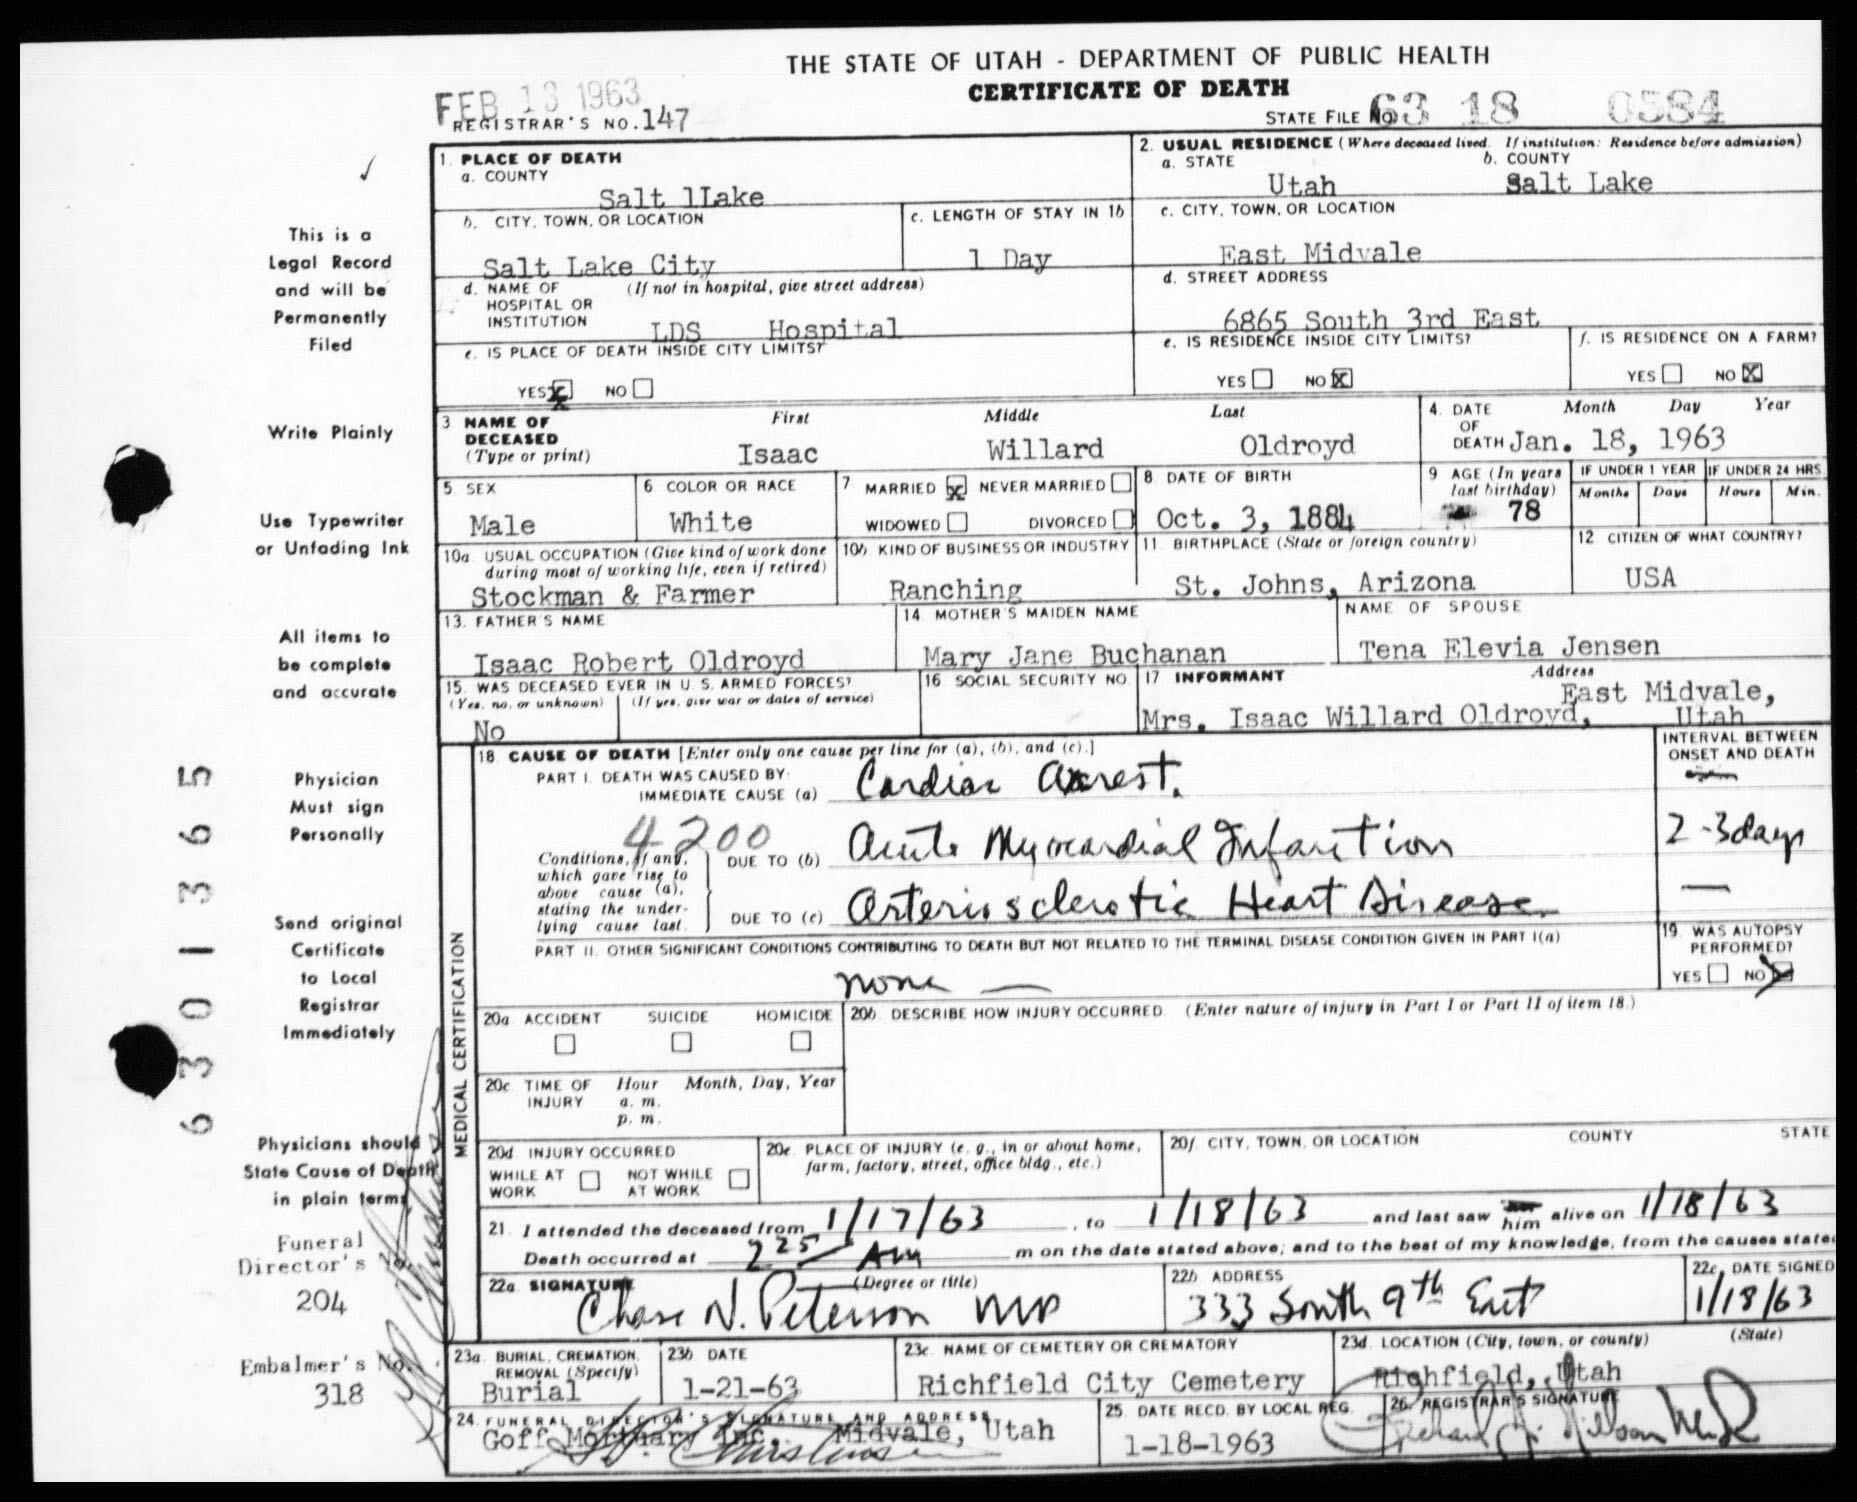 THE STATE OF UTAH - DEPARTMENT OF PUBLIC HEALTH
CERTIFICATE OF DEATH
FEB 13 1963
REGISTRAR'S NO. 147
STATE FILE NO. 63 18 0584
1. PLACE OF DEATH
a. COUNTY
Salt lLake
2. USUAL RESIDENCE (Where deceased lived. If institution: Residence before admission)
a. STATE
Utah
b. COUNTY
Salt Lake
b. CITY, TOWN, OR LOCATION
Salt Lake City
c. LENGTH OF STAY IN 1b
1 Day
c. CITY, TOWN, OR LOCATION
East Midvale
d. NAME OF HOSPITAL OR INSTITUTION
(If not in hospital, give street address)
LDS Hospital
d. STREET ADDRESS
6865 South 3rd East
e. IS PLACE OF DEATH INSIDE CITY LIMITS?
YES X NO
e. IS RESIDENCE INSIDE CITY LIMITS?
YES NO X
f. IS RESIDENCE ON A FARM?
YES NO X
3 NAME OF DECEASED
(Type or print)
First Middle Last
Isaac Willard Oldroyd
4. DATE OF DEATH
Month Day Year
Jan. 18, 1963
5. SEX
Male
6 COLOR OR RACE
White
7 MARRIED X NEVER MARRIED
WIDOWED DIVORCED
8 DATE OF BIRTH
Oct. 3, 1884
9 AGE (In years last birthday)
78
IF UNDER 1 YEAR
Months Days
IF UNDER 24 HRS.
Hours Min.
10a USUAL OCCUPATION (Give kind of work done during most of working life, even if retired)
Stockman & Farmer
10b KIND OF BUSINESS OR INDUSTRY
Ranching
11. BIRTHPLACE (State or foreign country)
St. Johns, Arizona
12. CITIZEN OF WHAT COUNTRY?
USA
13. FATHER'S NAME
Isaac Robert Oldroyd
14 MOTHER'S MAIDEN NAME
Mary Jane Buchanan
NAME OF SPOUSE
Tena Elevia Jensen
15. WAS DECEASED EVER IN U. S. ARMED FORCES?
(Yes, no, or unknown) (If yes, give war or dates of service)
No
16 SOCIAL SECURITY NO.
17 INFORMANT
Address
Mrs. Isaac Willard Oldroyd, East Midvale, Utah
MEDICAL CERTIFICATION
18. CAUSE OF DEATH [Enter only one cause per line for (a), (b), and (c).]
PART I. DEATH WAS CAUSED BY:
IMMEDIATE CAUSE (a) Cardiac Arrest.
4200
Conditions, if any, which gave rise to above cause (a), stating the underlying cause last.
DUE TO (b) Acute Myocardial Infarction
DUE TO (c) Arteriosclerotic Heart Disease
INTERVAL BETWEEN ONSET AND DEATH
2-3 days
—
PART II. OTHER SIGNIFICANT CONDITIONS CONTRIBUTING TO DEATH BUT NOT RELATED TO THE TERMINAL DISEASE CONDITION GIVEN IN PART I(a)
none —
19. WAS AUTOPSY PERFORMED?
YES NO X
20a. ACCIDENT SUICIDE HOMICIDE
20b. DESCRIBE HOW INJURY OCCURRED. (Enter nature of injury in Part I or Part II of item 18.)
20c. TIME OF INJURY
Hour Month, Day, Year
a. m.
p. m.
20d. INJURY OCCURRED
WHILE AT WORK NOT WHILE AT WORK
20e. PLACE OF INJURY (e. g., in or about home, farm, factory, street, office bldg., etc.)
20f. CITY, TOWN, OR LOCATION COUNTY STATE
21. I attended the deceased from 1/17/63, to 1/18/63 and last saw him alive on 1/18/63
Death occurred at 2 25 AM m on the date stated above; and to the best of my knowledge, from the causes state
22a. SIGNATURE (Degree or title)
Chase N. Peterson MD
22b. ADDRESS
333 South 9th East
22c. DATE SIGNED
1/18/63
23a. BURIAL, CREMATION, REMOVAL (Specify)
Burial
23b DATE
1-21-63
23c. NAME OF CEMETERY OR CREMATORY
Richfield City Cemetery
23d. LOCATION (City, town, or county) (State)
Richfield, Utah
24. FUNERAL DIRECTOR'S SIGNATURE AND ADDRESS
Goff Mortuary Inc. Midvale, Utah
25. DATE RECD. BY LOCAL REG.
1-18-1963
26. REGISTRAR'S SIGNATURE
This is a
Legal Record
and will be
Permanently
Filed
Write Plainly
Use Typewriter
or Unfading Ink
All items to
be complete
and accurate
Physician
Must sign
Personally
Send original
Certificate
to Local
Registrar
Immediately
Physicians should
State Cause of Death
in plain terms
Funeral
Director's No.
204
Embalmer's No.
318
6 3 0 1 3 3 6 5